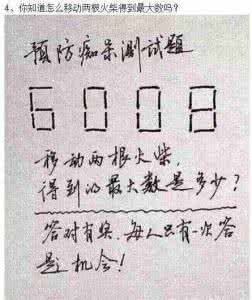 4、你知道怎么移动两根火柴得到最大数吗？
预防痴呆测试题
6008
移动两根火柴，
得到的最大数是多少？
答对有奖，每人只有一次答
题机会！